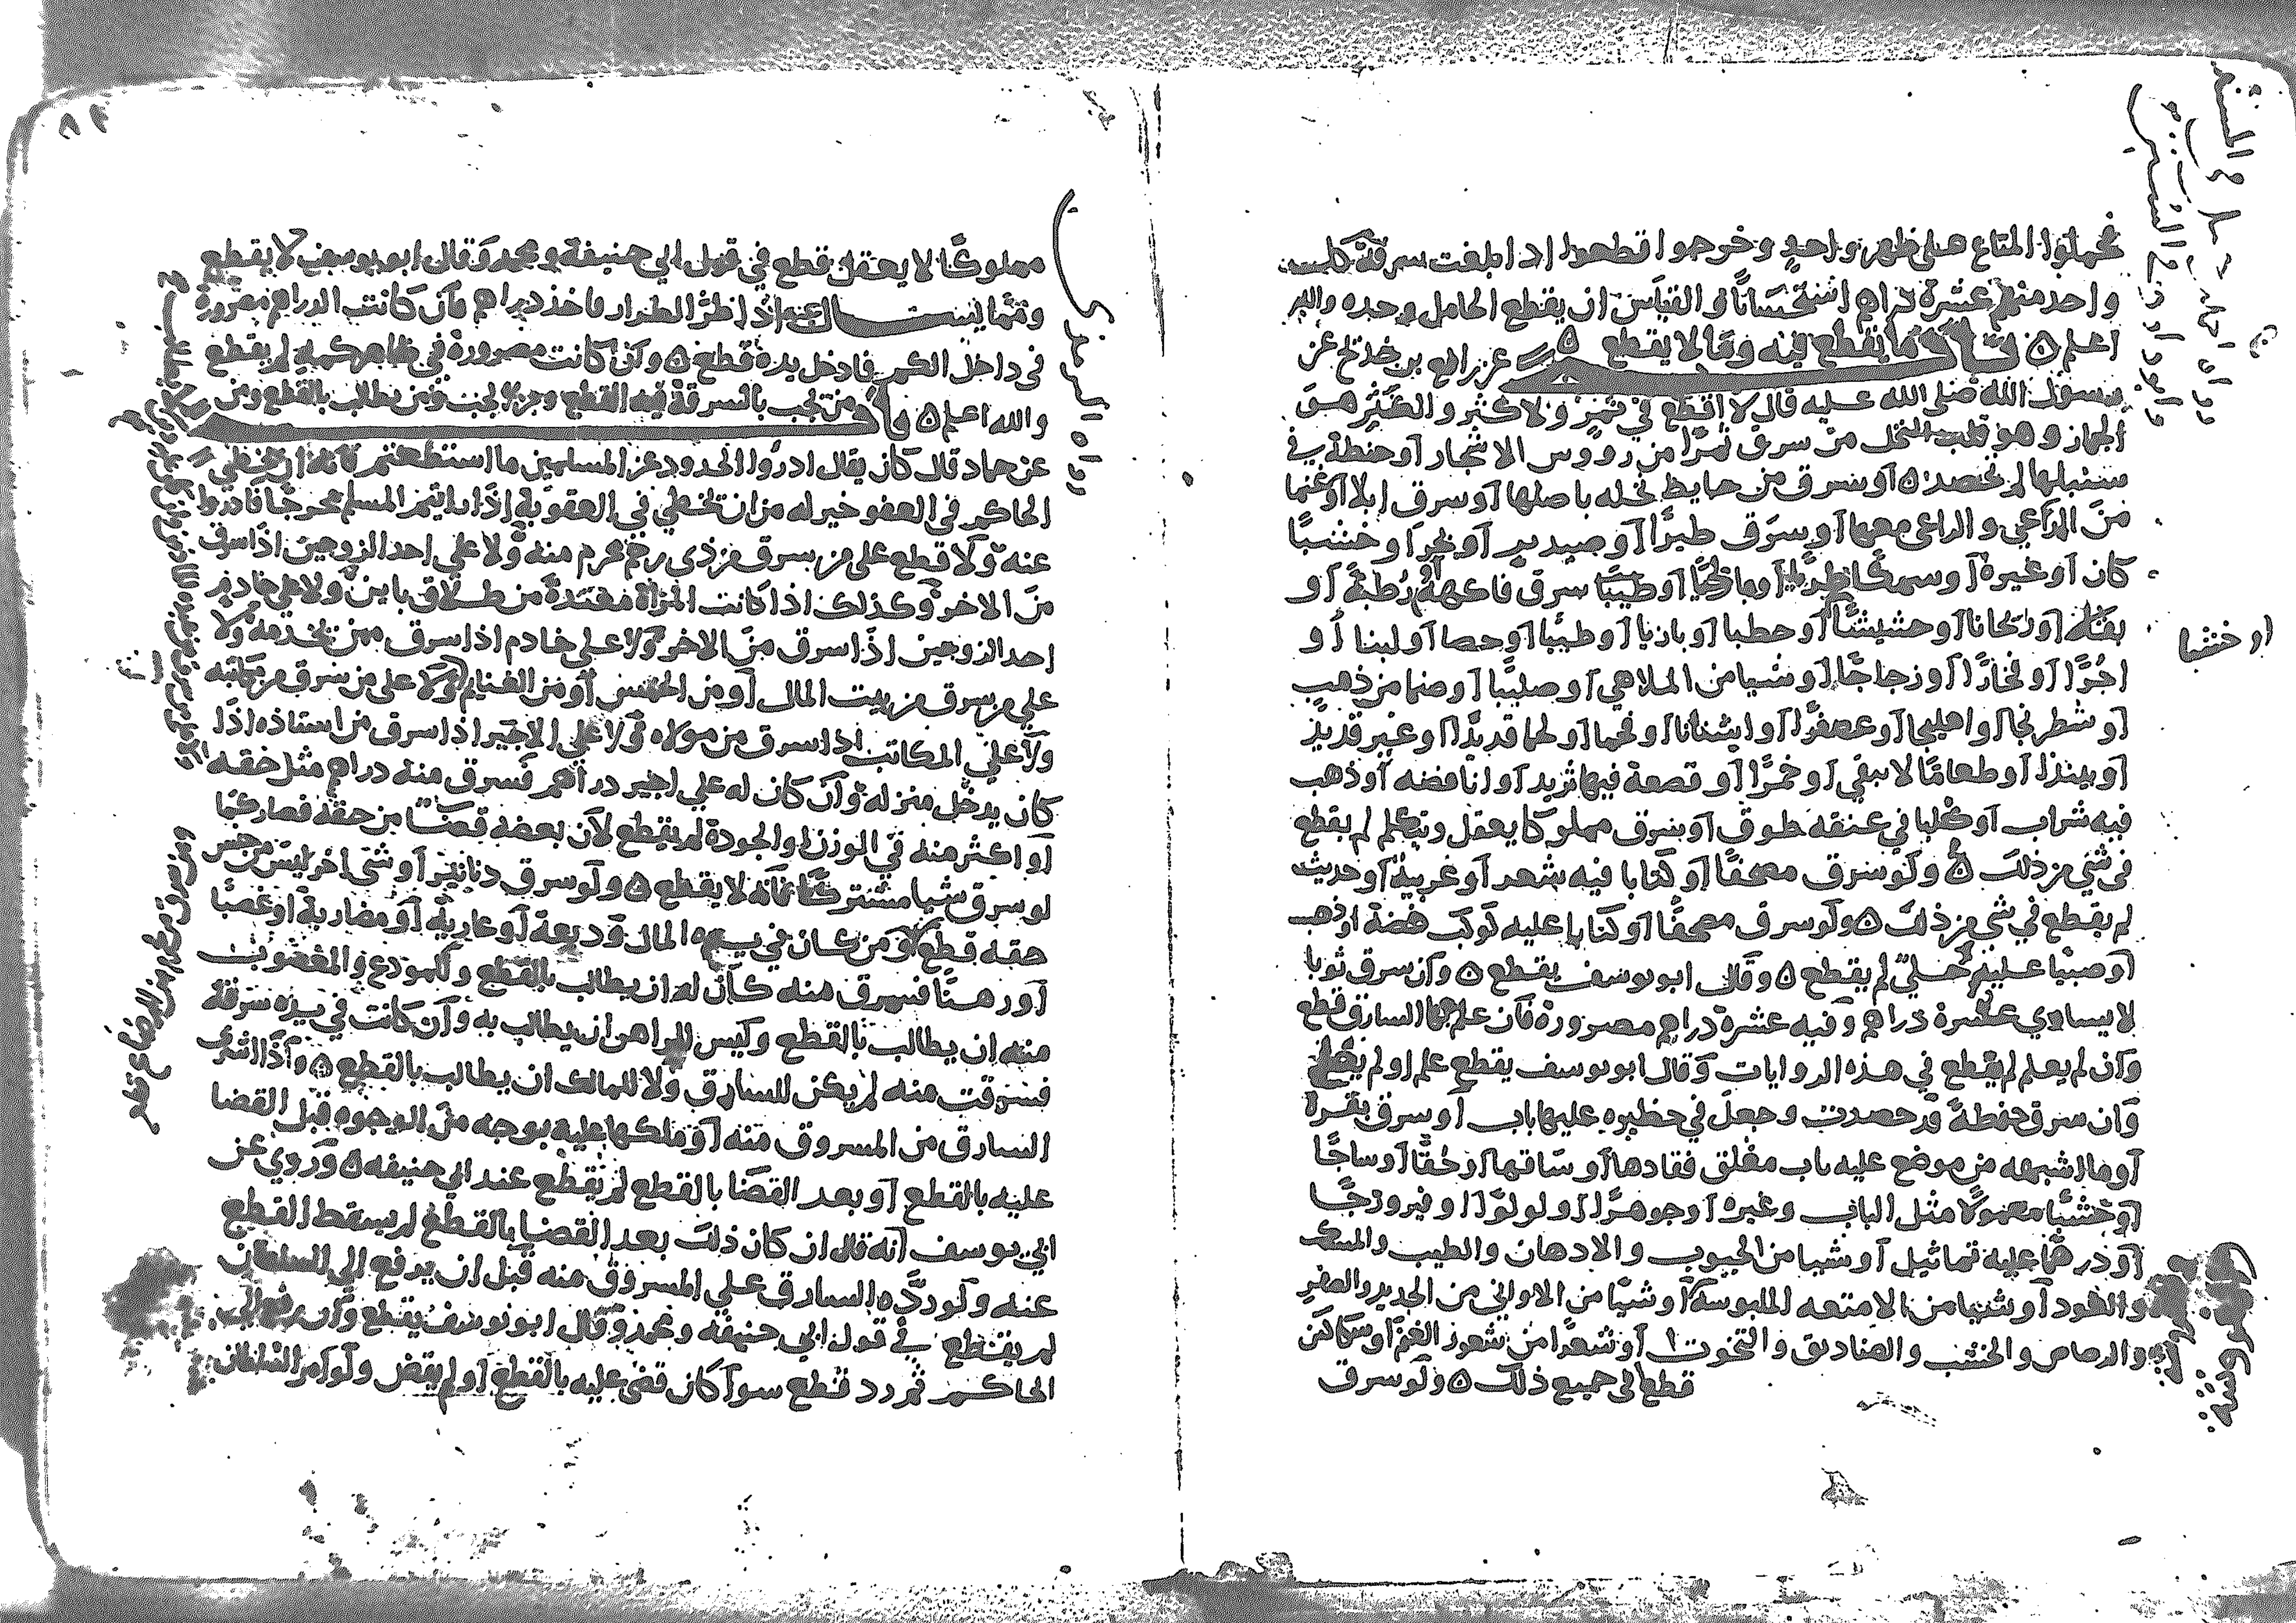 فحملوا المتاع على ظهر واحد وخرجوا قطعوا اذا بلغت سرقة كل
واحد منهم عشرة دراهم استحسانا والقياس ان يقطع الحامل وحده والله
اعلم ٥ باب ما يقطع فيه وما لا يقطع ٥ عن رافع بن خديج عن
رسول الله صلى الله عليه قال لا قطع في ثمر ولا كثر والكثر هو
الجمار وهو قلب النخل من سرق ثمرا من رووس الاشجار او حنطة في
سنبلها لم تحصد ٥ او سرق من حايط نخله باصلها او سرق ابلا او غنما
من الراعي والراعي معها او سرق طيرا او صيد او خشبا
كان او غيره او سمكا طريا او مالحا او سرق فاكهة رطبة او
بقلة او ريحانا او حشيشا او حطبا او بازيا او طينا او جصا او لبنا او
اجرا او فخارا او زجاجا او شيا من الملاهي او صليبا او صنما من ذهب
او شطرنجا او اهليجا او عصفرا او اشنانا او فحما او لحما قديدا او غير قديد
او نبيذا او طعاما لا يبقى او خمرا او قصعة فيها ثريد او انا فضه او ذهب
فيه شراب او كلبا في عنقه طوق او سرق مملوكا يعقل ويتكلم لم يقطع
في شي من ذلك ٥ ولو سرق مصحفا او كتابا فيه شعر او غريبه او حديث
لم يقطع في شي من ذلك ٥ ولو سرق مصحفا او كتابا عليه كوكب فضة او ذهب
او صبيا عليه حلي لم يقطع ٥ وقال ابو يوسف يقطع ٥ وان سرق ثوبا
لا يساوي عشرة دراهم وفيه عشرة دراهم مصرورة فان علم بها السارق قطع
وان لم يعلم لم يقطع في هذه الروايات وقال ابو يوسف يقطع علم او لم يعلم
وان سرق حنطة قد حصدت وجعل في حظيره عليها باب او سرق بقرة
او ما اشبهه من موضع عليه باب مغلق فقادها او ساقها او حقا او ساجا
او خشبا معمولا مثل الباب وغيره او جوهرا او لولوا او فيروزجا
او درهما عليه تماثيل او شيا من الحبوب والادهان والطيب والمسك
والعود او شيا من الامتعه الملبوسة او شيا من الاواني من الحديد والصفر
والرصاص والخشب والصناديق والتخوت او شعرا من شعور الغنم او سكاكين
قطع في جميع ذلك ٥ ولو سرق
او خشبا
مملوكا لا يعقل قطع في قول ابي حنيفة ومحمد وقال ابو يوسف لا يقطع
اذا طر الطرار فاخذ دراهم فان كانت الدراهم مصرورة
في داخل الكم فادخل يده قطع ٥ وان كانت مصرورة في ظاهر كمه لم يقطع
والله اعلم ٥ باب من يجب بالسرقة فيه القطع ومن لا يجب ومن يطالب بالقطع ومن
عن حماد قال كان يقال ادروا الحدود عن المسلمين ما استطعتم فانه ان يخطي
الحاكم في العفو خير له من ان يخطي في العقوبة اذا رايتم للمسلم مخرجا فادروا
عنه ولا قطع على من سرق من ذي رحم محرم منه ولا على احد الزوجين اذا سرق
من الاخر وكذلك اذا كانت المراة معتدة من طلاق باين ولا على خادم
احد الزوجين اذا سرق من الاخر ولا على خادم اذا سرق ممن يخدمه ولا
على من سرق من بيت المال او من الخمس او من الغنايم ولا على من سرق من مكاتبه
ولا على المكاتب اذا سرق من مولاه ولا على الاجير اذا سرق من استاذه اذا
كان يدخل منزله وان كان له على اجير دراهم فسرق منه دراهم مثل حقه
او اكثر منه في الوزن او الجودة لم يقطع لان بعضه قصاصا من حقه فصار كما
لو سرق شيا مشتركا فانه لا يقطع ٥ ولو سرق دنانير او شي اخر ليس من جنس
حقه قطع ومن كان في يده المال وديعة او عارية او مضاربة او غصبا
او رهنا فسرق منه كان له ان يطالب بالقطع وللمودع والمغصوب
منه ان يطالب بالقطع وليس للراهن ان يطالب به وان كانت في يده سرقة
فسرقت منه لم يكن للسارق ولا للمالك ان يطالب بالقطع ٥ واذا اشترى
السارق من المسروق منه او ملكها عليه بوجه من الوجوه قبل القضا
عليه بالقطع او بعد القضا بالقطع لم يقطع عند ابي حنيفه ٥ وروي عن
ابي يوسف انه قال ان كان ذلك بعد القضا بالقطع لم يسقط القطع
عنه ولو رده السارق على المسروق منه قبل ان يدفع الى السلطان
لم يقطع في قول ابي حنيفه ومحمد وقال ابو يوسف يقطع وان رفع الى
الحاكم ثم رد قطع سوا كان قضى عليه بالقطع او لم يقض ولو امر السلطان
رواه الترمذي